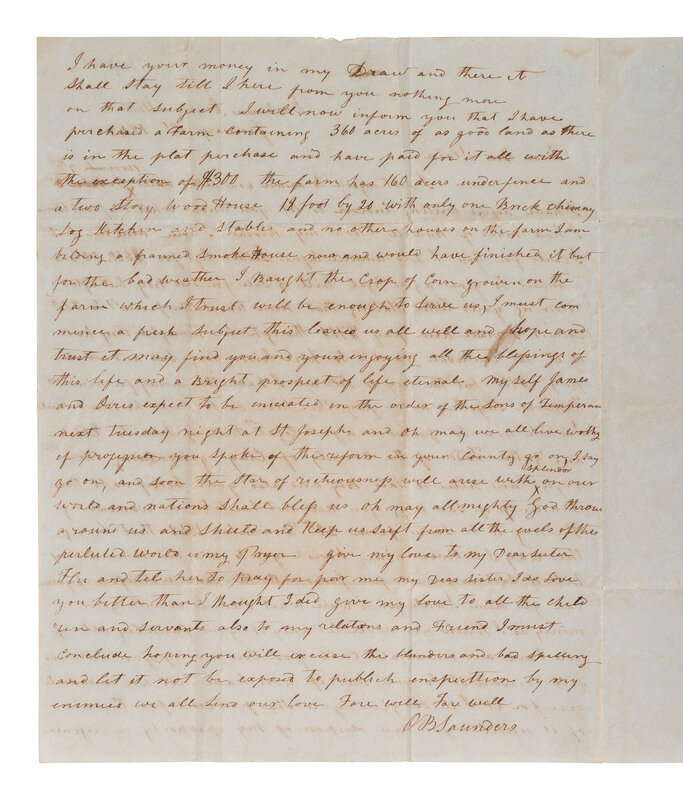 I have your money in my Draw and there it
Shall Stay till I here from you nothing more
on that Subject, I will now inform you that I have
perchased a Farm Containing 360 acres of as good land as there
is in the plat perchase and have paid for it all with
the exception of $300 the farm has 160 acers underfince and
a two Story Wood House 18 foot by 20 with only one Brick Chimny
Log Kitchen and Stables and no other houses on the farm I am
bilding a framed Smoke House now and would have finished it but
for the bad weather I Baught the Crop of Corn growin on the
farm which I trust will be enough to Serve us, I must com
mince a fresh Subject this leaves us all well and I hope and
trust it may find you and yours engoying all the blessings of
this life and a Bright prospect of life eternal my Self James
and Orris expect to be iniciated in the order of the Sons of Temperan
next tuesday night at St Joseph and Oh may we all live worthy
of profession you Spoke of the reform in your County go on, I Say
go on, and soon the Star of richiousness will arise with Splendor on our
world and nations Shall bless us oh may all mighty God throw
a round us and Shield and Keep us Saift from all the evels of this
perluted World is my Prayer give my love to my Dear Sister
and tel her to pray for poor me my Dear Sister I do love
you better than I thought I did give my love to all the Child
ren and Servants also to my relations and Friend I must
Conclude hoping you will excuse the blunders and bad Spelling
and let it not be exposed to publick inspecttion by my
enimies we all Send our love Fare well Fare well
O B Saunders